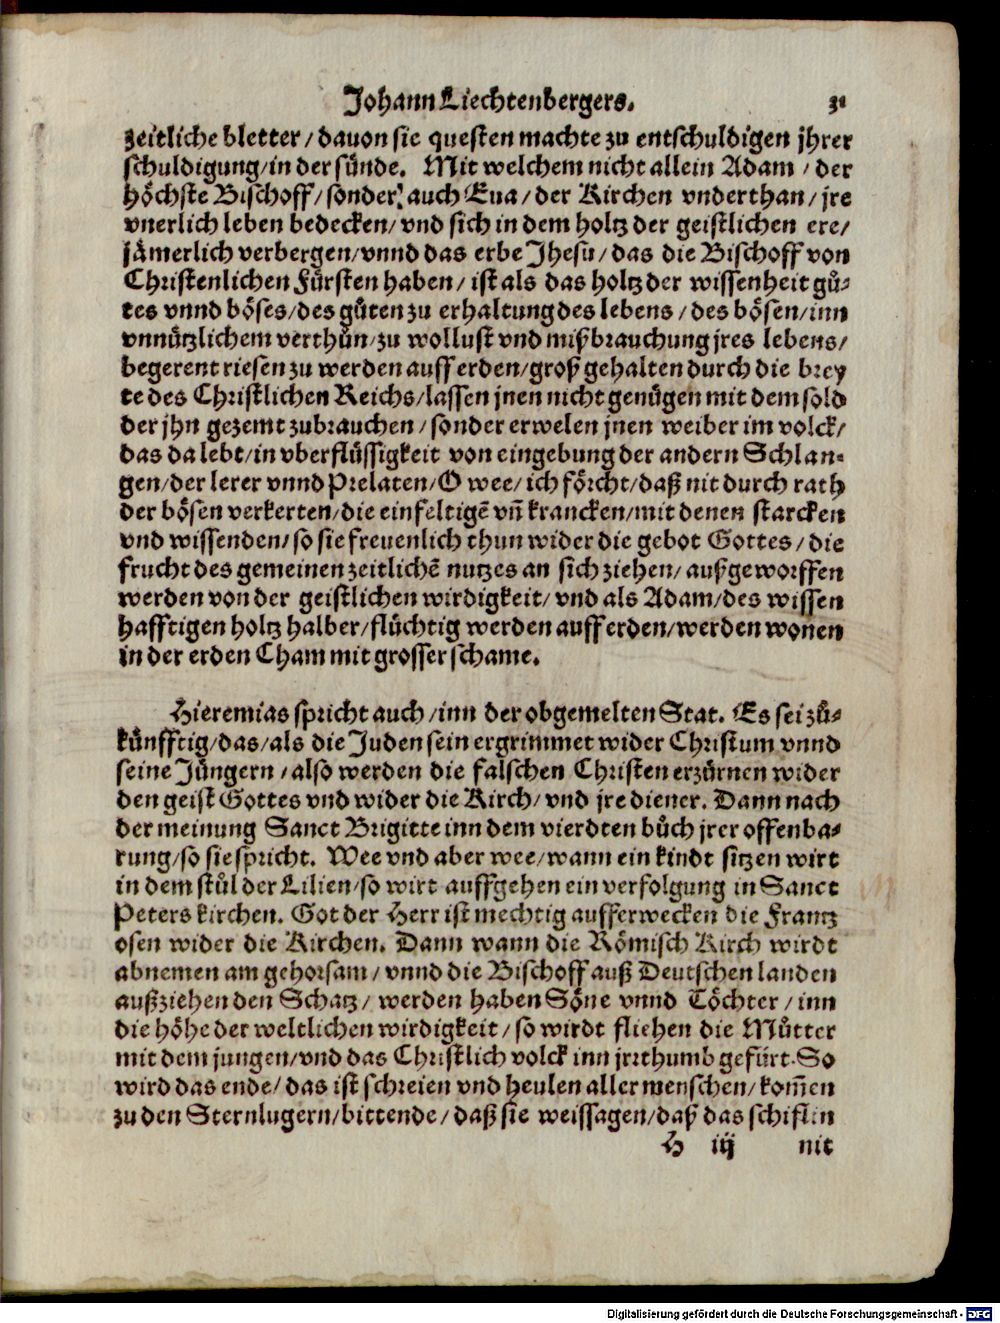 Johann Liechtenbergers. 31
zeitliche bletter/davon sie questen machte zu entschuldigen jhrer
schuldigung/in der sünde. Mit welchem nicht allein Adam/der
höchste Bischoff/sonder auch Eua/der Kirchen vnderthan/jre
vnerlich leben bedecken/vnd sich in dem holtz der geistlichen ere/
jämerlich verbergen/vnnd das erbe Jhesu/das die Bischoff von
Christenlichen Fürsten haben/ist als das holtz der wissenheit gů-
tes vnnd böses/des gůten zu erhaltung des lebens/des bösen/inn
vnnützlichem verthůn/zu wollust vnd mißbrauchung jres lebens/
begerent riesen zu werden auff erden/groß gehalten durch die brey
te des Christlichen Reichs/lassen jnen nicht genügen mit dem sold
der jhn gezemt zubrauchen/sonder erwelen jnen weiber im volck/
das da lebt/in vberflüssigkeit von eingebung der andern Schlan-
gen/der lerer vnnd Prelaten/O wee/ich förcht/daß nit durch rath
der bösen verkerten/die einfeltigē vn̄ krancken/mit denen starcken
vnd wissenden/so sie freuenlich thun wider die gebot Gottes/die
frucht des gemeinen zeitlichē nutzes an sich ziehen/außgeworffen
werden von der geistlichen wirdigkeit/vnd als Adam/des wissen
hafftigen holtz halber/flüchtig werden auff erden/werden wonen
in der erden Cham mit grosser schame.
Hieremias spricht auch/inn der obgemelten Stat. Es sei zů-
künfftig/das/als die Juden sein ergrimmet wider Christum vnnd
seine Jüngern/also werden die falschen Christen erzürnen wider
den geist Gottes vnd wider die Kirch/vnd jre diener. Dann nach
der meinung Sanct Brigitte inn dem vierdten bůch jrer offenba-
rung/so sie spricht. Wee vnd aber wee/wann ein kindt sitzen wirt
in dem stůl der Lilien/so wirt auffgehen ein verfolgung in Sanct
Peters kirchen. Got der Herr ist mechtig aufferwecken die Frantz
osen wider die Kirchen. Dann wann die Römisch Kirch wirdt
abnemen am gehorsam/vnnd die Bischoff auß Deutschen landen
außziehen den Schatz/werden haben Söne vnnd Töchter/inn
die höhe der weltlichen wirdigkeit/so wirdt fliehen die Můtter
mit dem jungen/vnd das Christlich volck inn jrrthumb gefürt. So
wird das ende/das ist schreien vnd heulen aller menschen/kom̄en
zu den Sternlugern/bittende/daß sie weissagen/daß das schiflin
H iij nit
Digitalisierung gefördert durch die Deutsche Forschungsgemeinschaft - DFG